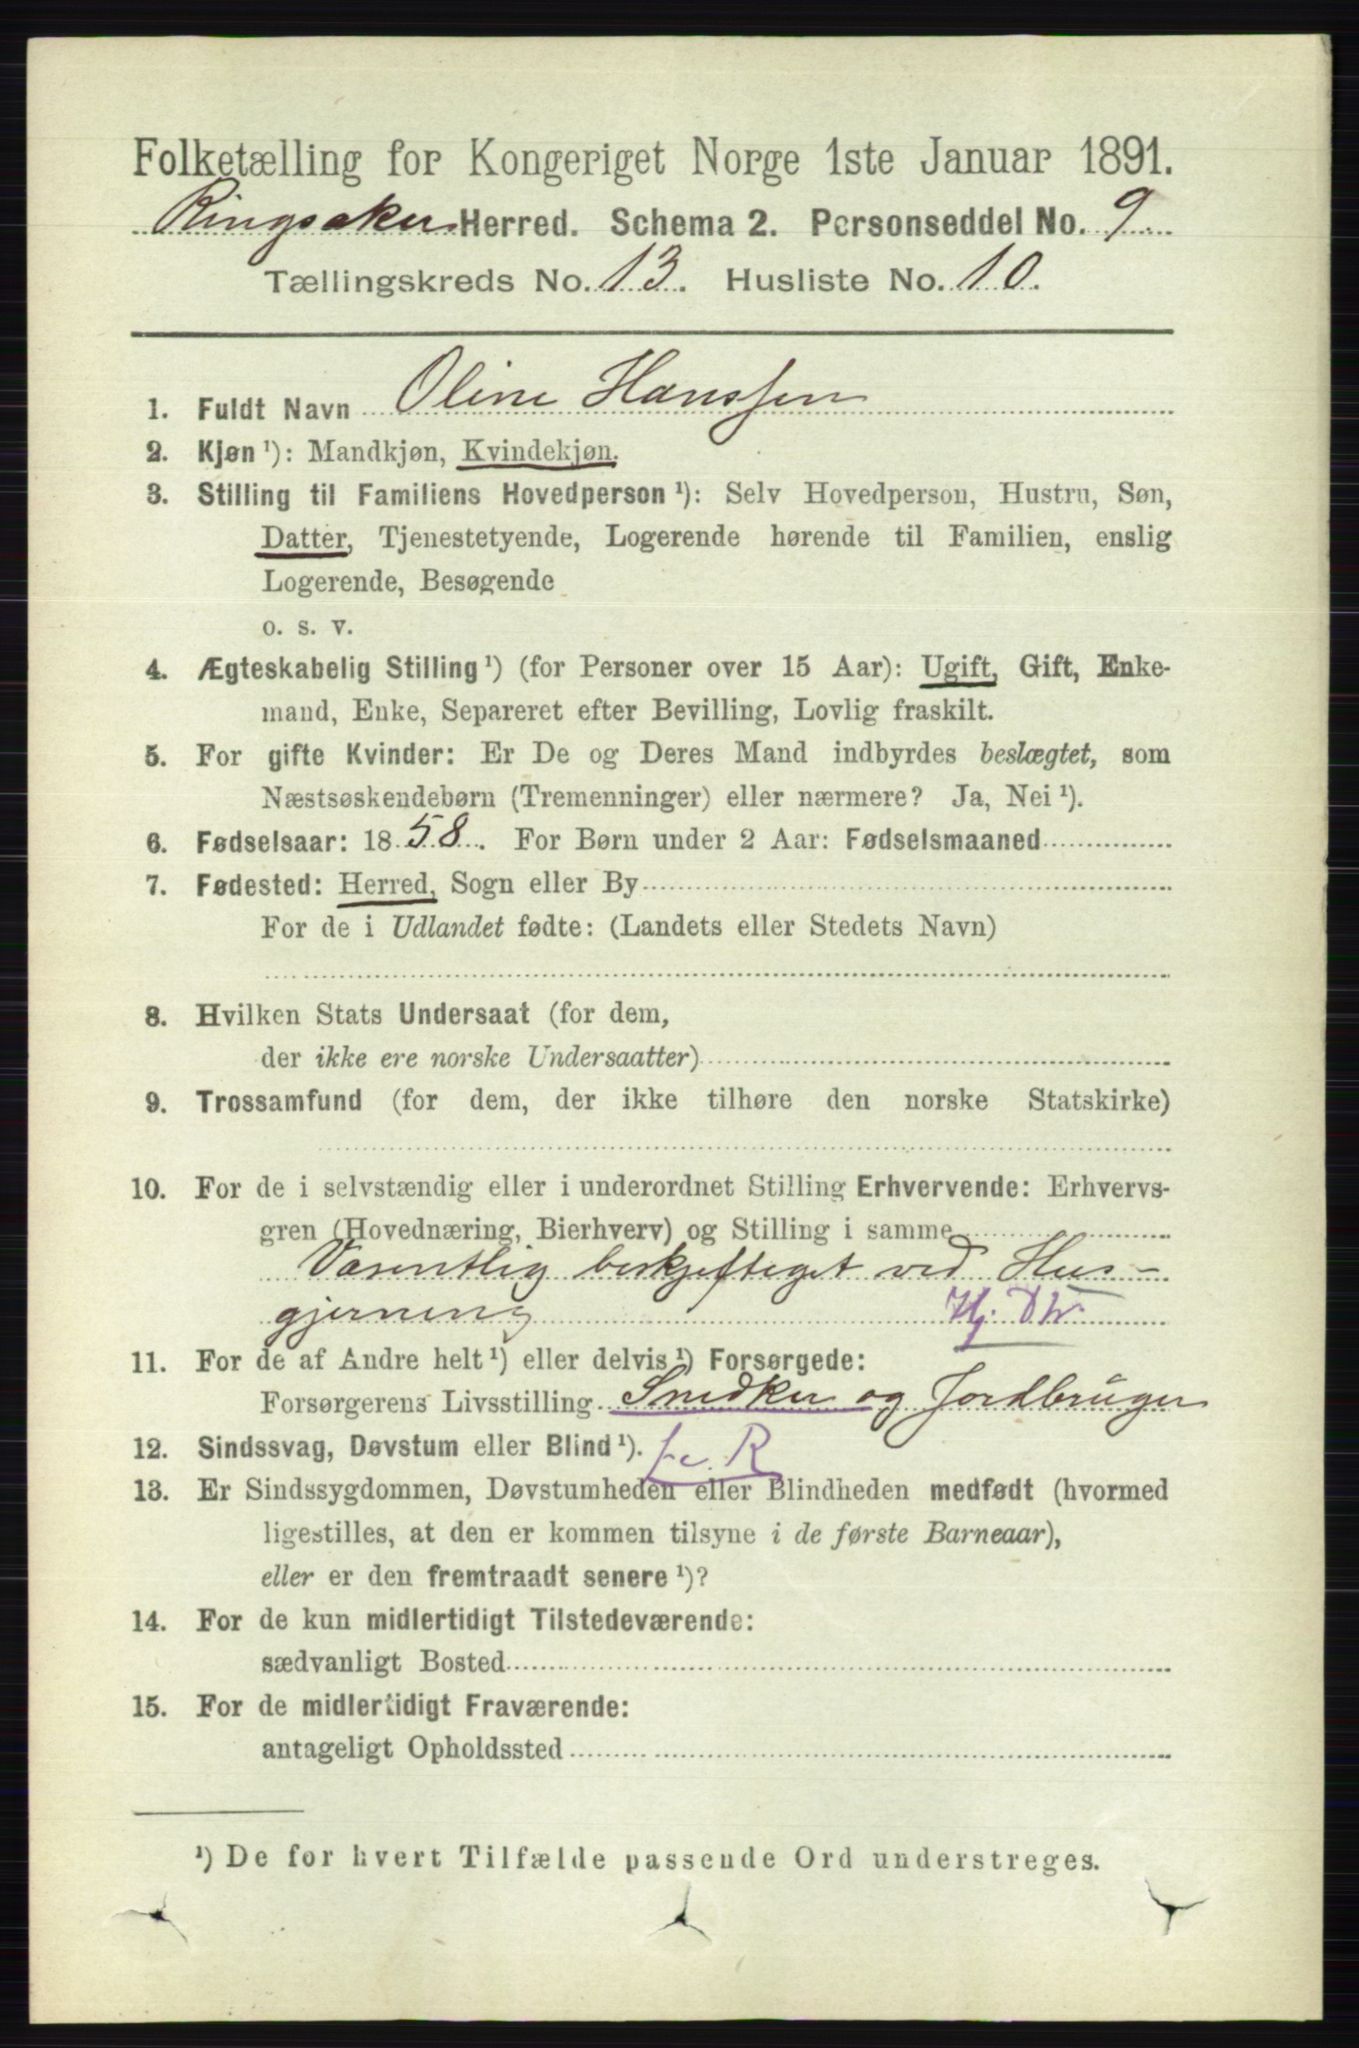 Folketælling for Kongeriget Norge 1ste Januar 1891.
Ringsaker Herred. Schema 2. Personseddel No. 9
Tællingskreds No. 13. Husliste No. 10.
1. Fuldt Navn Oline Hanssen
2. Kjøn ¹): Mandkjøn, Kvindekjøn.
3. Stilling til Familiens Hovedperson ¹): Selv Hovedperson, Hustru, Søn,
Datter, Tjenestetyende, Logerende hørende til Familien, enslig
Logerende, Besøgende
o. s. v.
4. Ægteskabelig Stilling ¹) (for Personer over 15 Aar): Ugift, Gift, Enke-
mand, Enke, Separeret efter Bevilling, Lovlig fraskilt.
5. For gifte Kvinder: Er De og Deres Mand indbyrdes beslægtet, som
Næstsøskendebørn (Tremenninger) eller nærmere? Ja, Nei ¹).
6. Fødselsaar: 1858. For Børn under 2 Aar: Fødselsmaaned
7. Fødested: Herred, Sogn eller By
For de i Udlandet fødte: (Landets eller Stedets Navn)
8. Hvilken Stats Undersaat (for dem,
der ikke ere norske Undersaatter)
9. Trossamfund (for dem, der ikke tilhøre den norske Statskirke)
10. For de i selvstændig eller i underordnet Stilling Erhvervende: Erhvervs-
gren (Hovednæring, Bierhverv) og Stilling i samme
Væsentlig beskjeftiget ved Hus-
gjerning Hj. Dtr.
11. For de af Andre helt ¹) eller delvis ¹) Forsørgede:
Forsørgerens Livsstilling Snedker og Jordbruger
12. Sindssvag, Døvstum eller Blind ¹).
13. Er Sindssygdommen, Døvstumheden eller Blindheden medfødt (hvormed
ligestilles, at den er kommen tilsyne i de første Barneaar),
eller er den fremtraadt senere ¹)?
14. For de kun midlertidigt Tilstedeværende:
sædvanligt Bosted
15. For de midlertidigt Fraværende:
antageligt Opholdssted
¹) De for hvert Tilfælde passende Ord understreges.